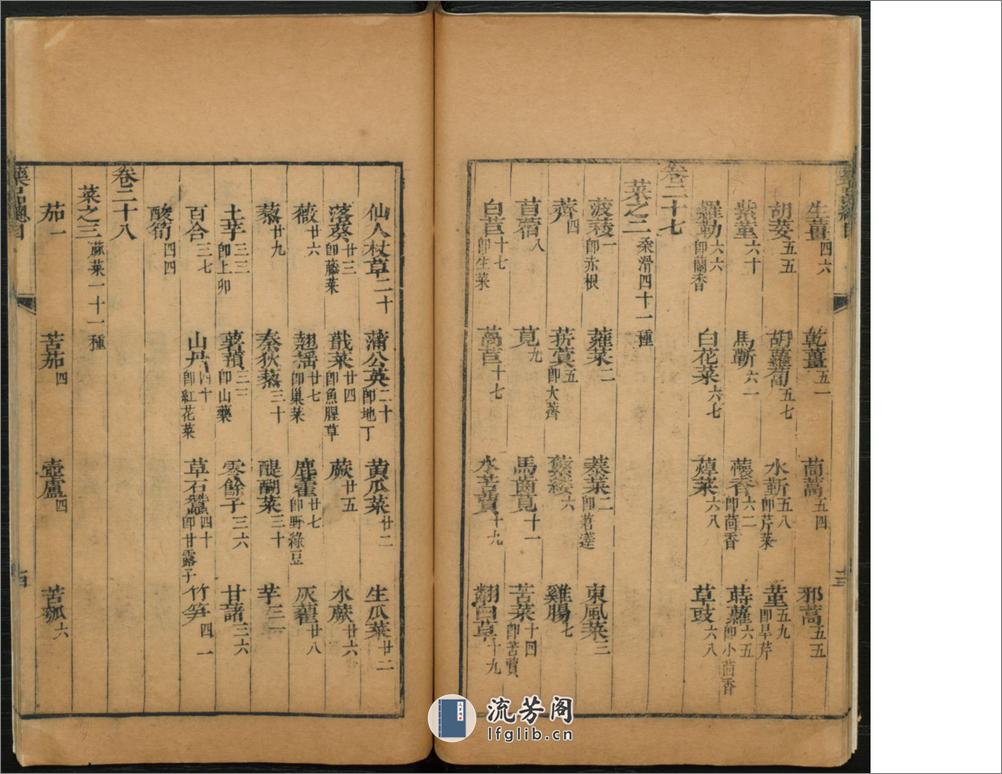 生薑四六 乾薑五一 茼蒿五四 邪蒿五五
胡荽五五 胡蘿蔔五七 水蘄即芹菜五八 菫即旱芹五九
紫菫六十 馬蘄六一 蘹香即茴香六二 蒔蘿即小茴香六五
羅勒即蘭香六六 白花菜六七 蔊菜六八 草豉六八
卷二十七
菜之二柔滑四十一種
菠薐即赤根一 蕹菜二 菾菜即莙薘二 東風菜三
薺四 菥蓂即大薺五 蘩縷六 雞腸七
苜蓿八 莧九 馬齒莧十一 苦菜即苦蕒十四
白苣即生菜十七 萵苣十七 水苦蕒十九 翻白草十九
仙人杖草二十 蒲公英即地丁二十 黃瓜菜廿二 生瓜菜廿二
落葵即藤菜廿三 蕺菜即魚腥草廿四 蕨廿五 水蕨廿六
薇廿六 翹搖即巢菜廿七 鹿藿即野綠豆廿七 灰藋廿八
藜廿九 秦荻藜三十 醍醐菜三十 芋三一
土芋即土卵三三 薯蕷即山藥三三 零餘子三六 甘藷三六
百合三七 山丹即紅花菜四十 草石蠶即甘露子四十 竹筍四一
酸筍四四
卷二十八
菜之三蓏菜一十一種
茄一 苦茄四 壺盧四 苦瓠六
藥品總目
流芳阁
lfglib.cn